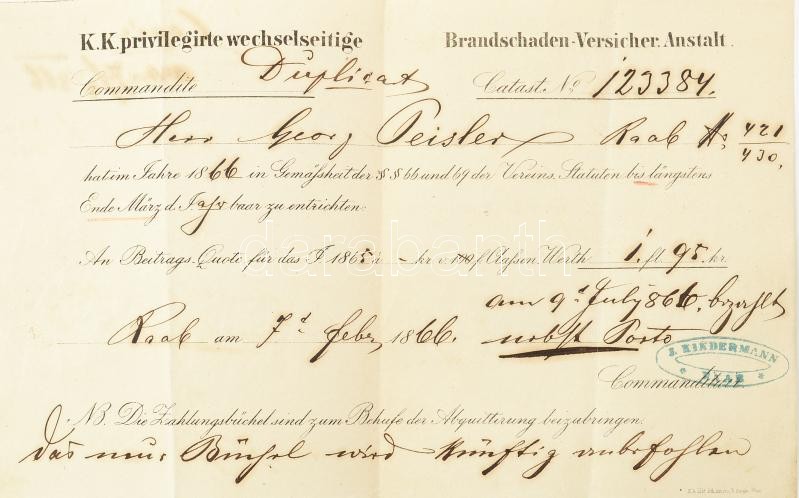 K.K. privilegirte wechselseitige Brandschaden-Versicher. Anstalt.
Commandite Duplicat Catast. No. 123384.
Herr Georg Peisler Raab No. 421/430.
hat im Jahre 1866 in Gemäßheit der §§ 66 und 69 der Vereins-Statuten bis längstens
Ende März d. Jahr baar zu entrichten:
An Beitrags-Quote für das J 1865 à - kr v 100 f Classen Werth 1. fl. 95. kr.
am 9t July 866. bezahlt
Raab am 7t febr 1866. nebst Porto
J. KINDERMANN
RAAB
Commanditär.
NB. Die Zahlungsbüchel sind zum Behufe der Abquittirung beizubringen.
Das neue Büchel wird künftig anbefohlen
darabanth